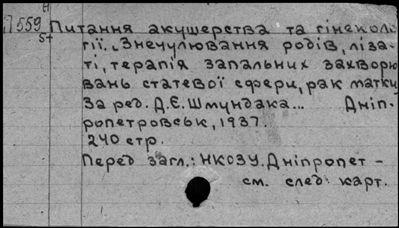 П559 Питання акушерства та гінеколо
5+ гії. Знечулювання родів, ліза-
ті, терапія запальних захворю
вань статевої сфери, рак матки
За ред. Д.Є. Шмундака... Дніп-
ропетровськ, 1937.
240 стр.
Перед загл.: НКОЗУ. Дніпропет -
см. след. карт.